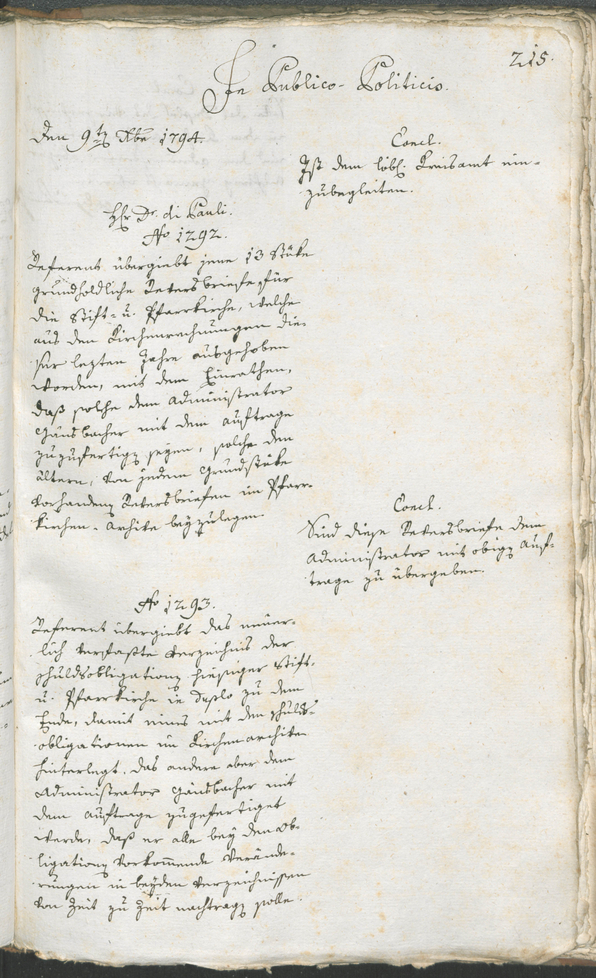 215.
In Publico-Politicis.
Den 9ten Xber 1794.
Concl.
Ist dem löbl. Kreisamt ein-
zubegleiten.
Hr Dr. di Pauli.
No 1292.
Referent übergiebt jene 13 Stüke
grundholdliche Reversbriefe, für
die Stift- u. Pfarrkirche, welche
aus den Kirchenrechnungen die-
ser lezten Jahre ausgehoben
worden, mit dem Einrathen,
daß solche dem Administrator
Gänsbacher mit dem Auftrage
zuzufertigen seyen, solche den
ältern, von jedem Grundstüke
vorhandenen Reversbriefen im Pfarr-
kirchen-Archive beyzulegen.
Concl.
Sind diese Reversbriefe dem
Administrator mit obigen Auf-
trage zu übergeben.
No 1293.
Referent übergiebt das neuer-
lich verfaßte Verzeichnis der
Schuldobligationen hiesiger Stift-
u. Pfarrkirche in duplo zu dem
Ende, damit eines mit den Schuld-
obligationen im Kirchenarchive
hinterlegt, das andere aber dem
Administrator Gänsbacher mit
dem Auftrage zugefertiget
werde, daß er alle bey den Ob-
ligationen vorkommende Verände-
rungen in beyden Verzeichnissen
von Zeit zu Zeit nachtragen solle.